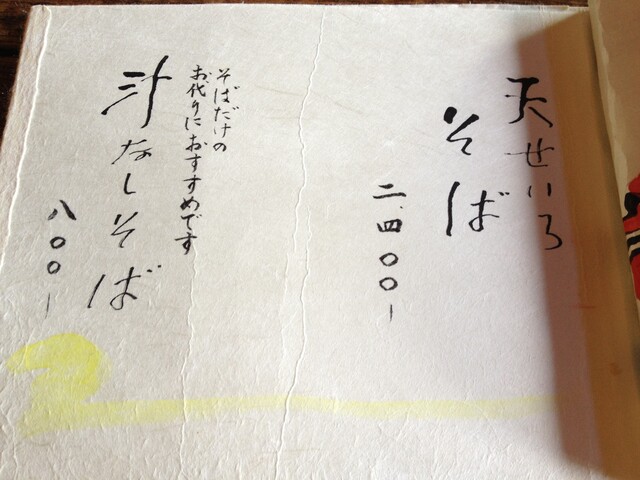 天せいろ
そば
二、四〇〇-
そばだけの
お代りにおすすめです
汁なしそば
八〇〇-